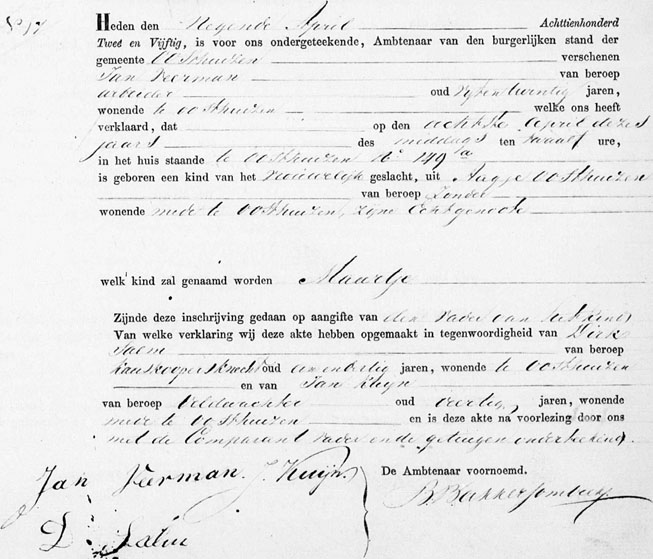 No 17
Heden den Negende April Achttienhonderd
Twee en Vijftig, is voor ons ondergeteekende, Ambtenaar van den burgerlijken stand der
gemeente Oosthuizen verschenen
Jan Veerman van beroep
arbeider oud vijfentwintig jaren,
wonende te Oosthuizen welke ons heeft
verklaard, dat op den achtste April dezes
jaars des middags ten twaalf ure,
in het huis staande te Oosthuizen No 149 1a
is geboren een kind van het vrouwelijk geslacht, uit Aagje Oosthuizen
van beroep Zonder
wonende mede te Oosthuizen, zijne Echtgenoote
welk kind zal genaamd worden Maartje
Zijnde deze inschrijving gedaan op aangifte van den vader van het kind
Van welke verklaring wij deze akte hebben opgemaakt in tegenwoordigheid van Dirk
Salm van beroep
kaaskoopersknecht oud een en dertig jaren, wonende te Oosthuizen
en van Jan Kuijn
van beroep Veldwachter oud veertig, jaren, wonende
mede te Oosthuizen en is deze akte na voorlezing door ons
met de Comparant vader en de getuigen onderteekend.
Jan Veerman. J. Kuijn
De Ambtenaar voornoemd.
D. Salm